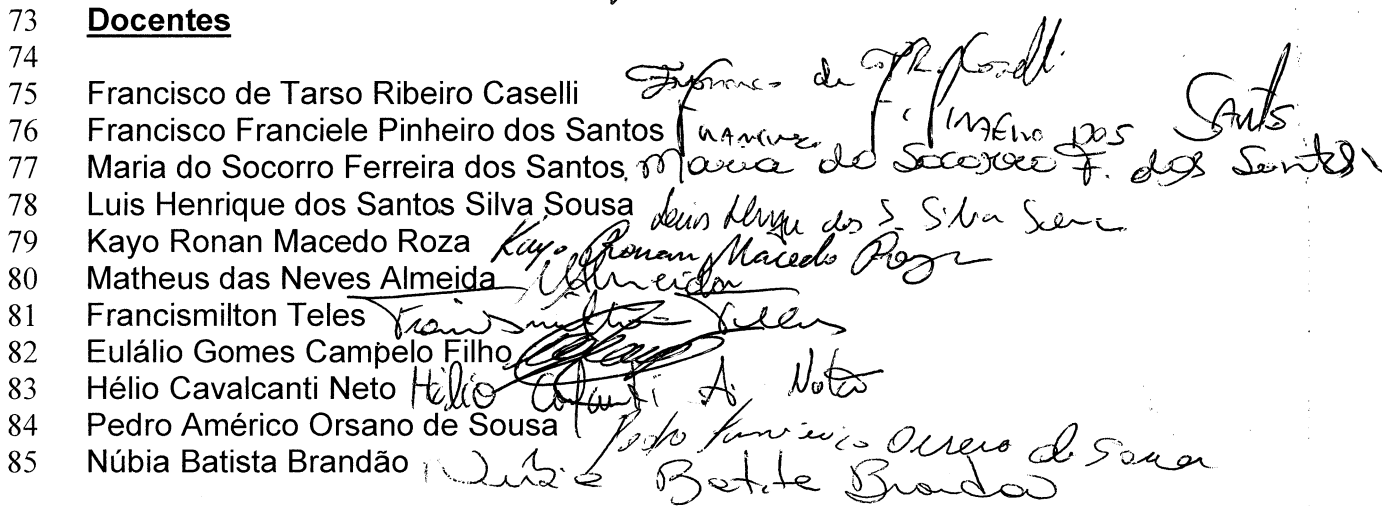 73 Docentes
74
75 Francisco de Tarso Ribeiro Caselli Francisco de T. R. Caselli
76 Francisco Franciele Pinheiro dos Santos Pinheiro dos Santos
77 Maria do Socorro Ferreira dos Santos Maria do Socorro F. dos Santos
78 Luis Henrique dos Santos Silva Sousa Luis Henrique dos S. Silva Sousa
79 Kayo Ronan Macedo Roza Kayo Ronan Macedo Roza
80 Matheus das Neves Almeida Almeida
81 Francismilton Teles Francismilton Teles
82 Eulálio Gomes Campelo Filho
83 Hélio Cavalcanti Neto Hélio A. Neto
84 Pedro Américo Orsano de Sousa Pedro Américo Orsano de Sousa
85 Núbia Batista Brandão Núbia Batista Brandão